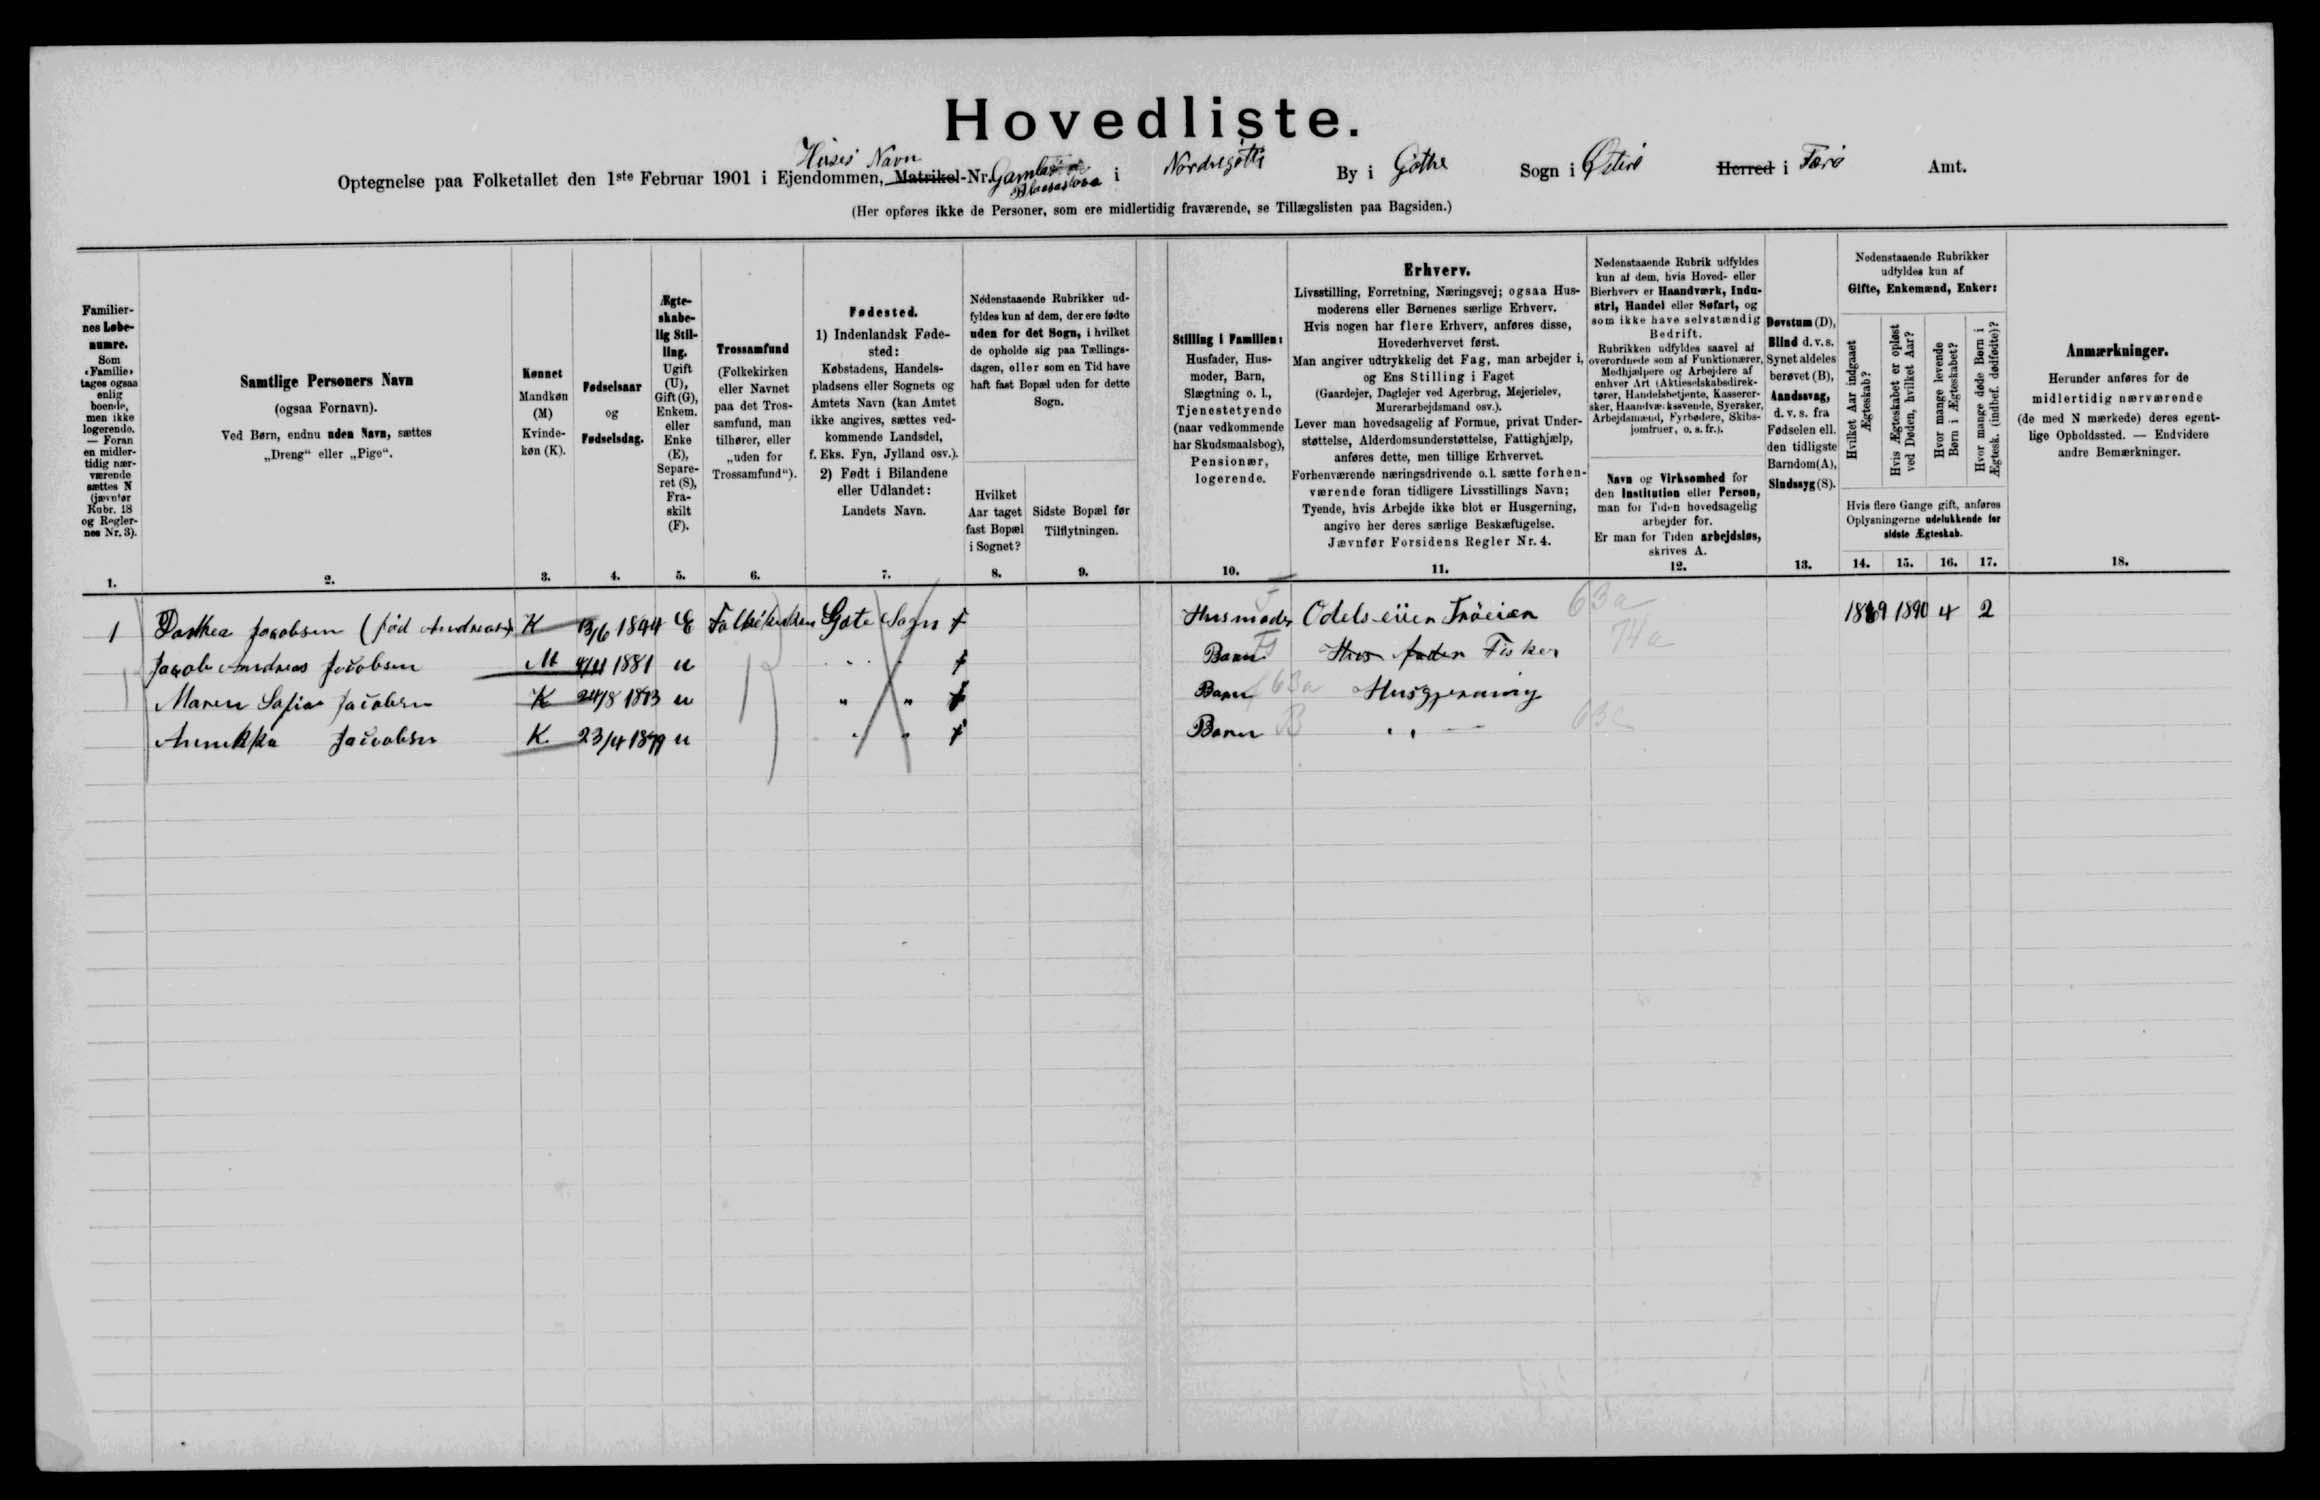 Hovedliste.
Huses Navn
Optegnelse paa Folketallet den 1ste Februar 1901 i Ejendommen, Matrikel-Nr. i Nordregøtte By i Gøthe Sogn i Østerø Herred i Færø Amt.
(Her opføres ikke de Personer, som ere midlertidig fraværende, se Tillægslisten paa Bagsiden.)
Familier-
nes Løbe-
numre.
Som
«Familie»
tages ogsaa
enlig
boende,
men ikke
logerende.
— Foran
en midler-
tidig nær-
værende
sættes N
(jævnfør
Rubr. 18
og Regler-
nes Nr. 3).
1.
Samtlige Personers Navn
(ogsaa Fornavn).
Ved Børn, endnu uden Navn, sættes
„Dreng“ eller „Pige“.
2.
Kønnet
Mandkøn
(M)
Kvinde-
køn (K).
3.
Fødselsaar
og
Fødselsdag.
4.
Ægte-
skabe-
lig Stil-
ling.
Ugift
(U),
Gift (G),
Enkem.
eller
Enke
(E),
Separe-
ret (S),
Fra-
skilt
(F).
5.
Trossamfund
(Folkekirken
eller Navnet
paa det Tros-
samfund, man
tilhører, eller
„uden for
Trossamfund“).
6.
Fødested.
1) Indenlandsk Føde-
sted:
Købstadens, Handels-
pladsens eller Sognets og
Amtets Navn (kan Amtet
ikke angives, sættes ved-
kommende Landsdel,
f. Eks. Fyn, Jylland osv.).
2) Født i Bilandene
eller Udlandet:
Landets Navn.
7.
Nedenstaaende Rubrikker ud-
fyldes kun af dem, der ere fødte
uden for det Sogn, i hvilket
de opholde sig paa Tællings-
dagen, eller som en Tid have
haft fast Bopæl uden for dette
Sogn.
Hvilket
Aar taget
fast Bopæl
i Sognet?
8.
Sidste Bopæl før
Tilflytningen.
9.
Stilling i Familien:
Husfader, Hus-
moder, Barn,
Slægtning o. l.,
Tjenestetyende
(naar vedkommende
har Skudsmaalsbog),
Pensionær,
logerende.
10.
Erhverv.
Livsstilling, Forretning, Næringsvej; ogsaa Hus-
moderens eller Børnenes særlige Erhverv.
Hvis nogen har flere Erhverv, anføres disse,
Hovederhvervet først.
Man angiver udtrykkelig det Fag, man arbejder i,
og Ens Stilling i Faget
(Gaardejer, Daglejer ved Agerbrug, Mejerielev,
Murerarbejdsmand osv.).
Lever man hovedsagelig af Formue, privat Under-
støttelse, Alderdomsunderstøttelse, Fattighjælp,
anføres dette, men tillige Erhvervet.
Forhenværende næringsdrivende o. l. sætte forhen-
værende foran tidligere Livsstillings Navn;
Tyende, hvis Arbejde ikke blot er Husgerning,
angive her deres særlige Beskæftigelse.
Jævnfør Forsidens Regler Nr. 4.
11.
Nedenstaaende Rubrik udfyldes
kun af dem, hvis Hoved- eller
Bierhverv er Haandværk, Indu-
stri, Handel eller Søfart, og
som ikke have selvstændig
Bedrift.
Rubrikken udfyldes saavel af
overordnede som af Funktionærer,
Medhjælpere og Arbejdere af
enhver Art (Aktieselskabsdirek-
tører, Handelsbetjente, Kasserer-
sker, Haandværkssvende, Syersker,
Arbejdsmænd, Fyrbødere, Skibs-
jomfruer, o. s. fr.).
Navn og Virksomhed for
den Institution eller Person,
man for Tiden hovedsagelig
arbejder for.
Er man for Tiden arbejdsløs,
skrives A.
12.
Døvstum (D),
Blind d. v. s.
Synet aldeles
berøvet (B),
Aandssvag,
d. v. s. fra
Fødselen ell.
den tidligste
Barndom (A),
Sindssyg (S).
13.
Nedenstaaende Rubrikker
udfyldes kun af
Gifte, Enkemænd, Enker:
Hvilket Aar indgaaet
Ægteskab?
Hvis Ægteskabet er opløst
ved Døden, hvilket Aar?
Hvor mange levende
Børn i Ægteskabet?
Hvor mange døde Børn i
Ægtesk. (indbef. dødfødte)?
Hvis flere Gange gift, anføres
Oplysningerne udelukkende for
sidste Ægteskab.
14. 15. 16. 17.
Anmærkninger.
Herunder anføres for de
midlertidig nærværende
(de med N mærkede) deres egent-
lige Opholdssted. — Endvidere
andre Bemærkninger.
18.
1 Dorthea Jacobsen (fød Andreasen) K 13/6 1844 E Folkekirken Gøte Sogn Husmoder 63a 1869 1890 4 2
Jacob Andreas Jacobsen M 1881 u " " Barn Fisker 74a
Maren Sofia Jacobsen K 24/8 1873 u " " Barn 63a Husgjerning
Annikka Jacobsen K 23/4 1879 u " " Barn B " — 63c